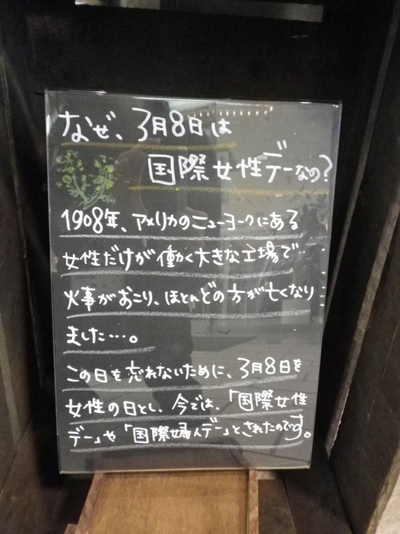 なぜ、3月8日は
国際女性デーなの?
1908年、アメリカのニューヨークにある
女性だけが働く大きな工場で…
火事がおこり、ほとんどの方が亡くなり
ました…。
この日を忘れないために、3月8日を
女性の日とし、今では、「国際女性
デー」や「国際婦人デー」とされたのです。